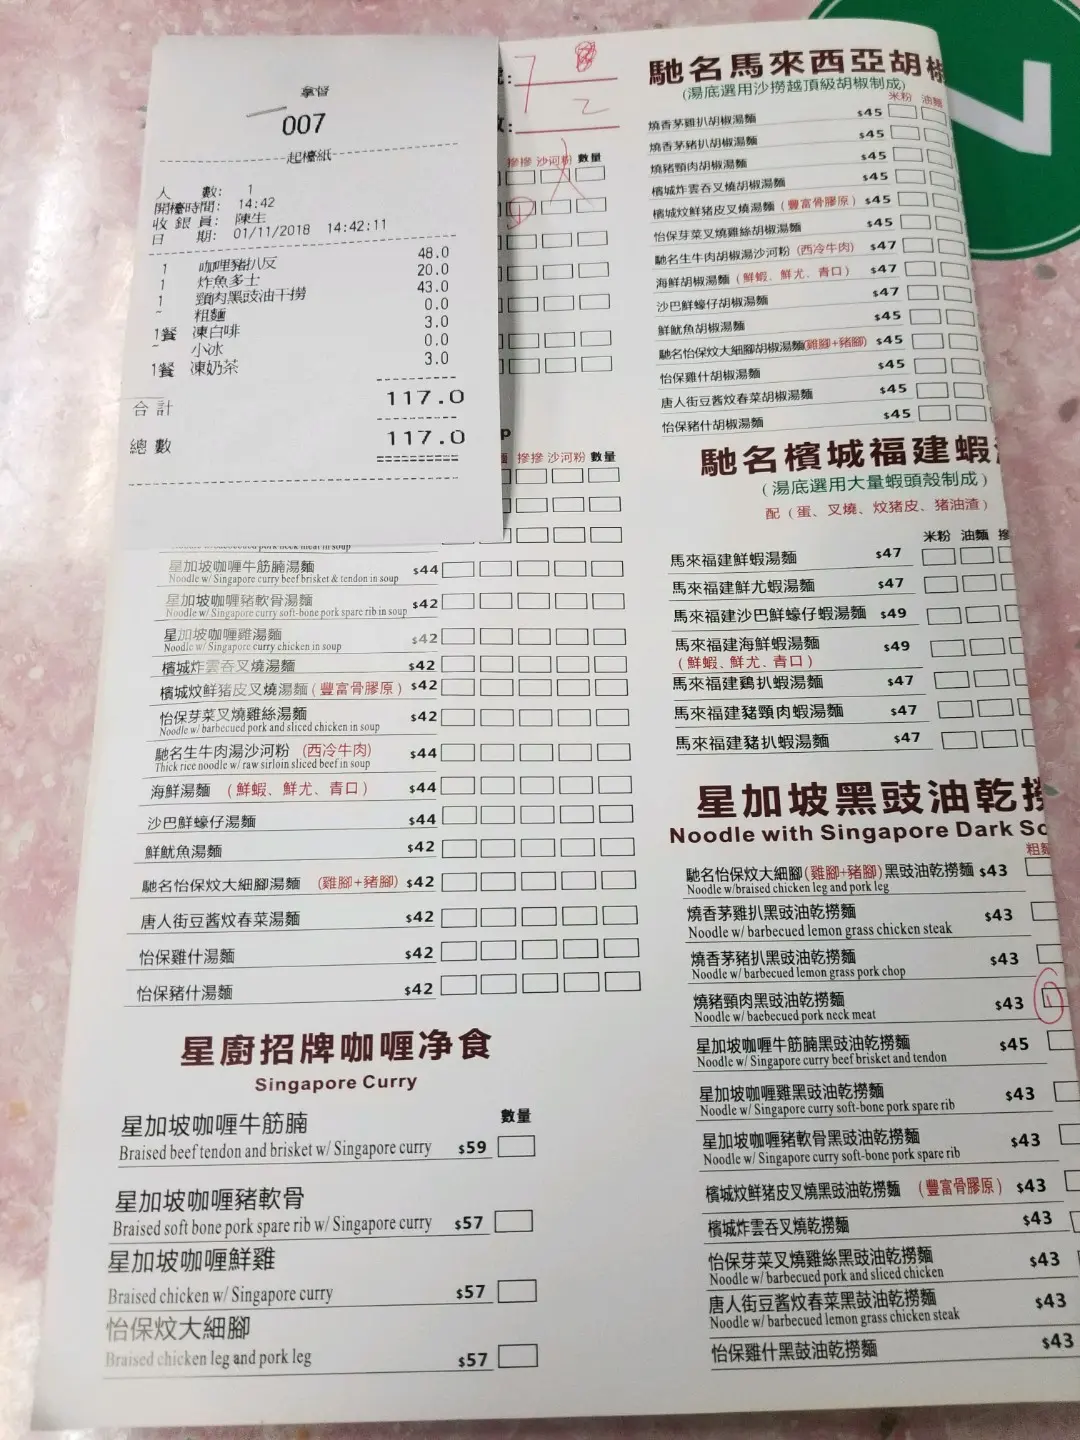 拿督
007
起檯紙
人 數: 1
開檯時間: 14:42
收銀員: 陳生
日 期: 01/11/2018 14:42:11
1 咖哩豬扒反 48.0
1 炸魚多士 20.0
1 頸肉黑豉油干撈 43.0
~ 粗麵 0.0
1餐 凍白啡 3.0
~ 小冰 0.0
1餐 凍奶茶 3.0
合計 117.0
總數 117.0
7 8
2
摻摻 沙河粉 數量
摻摻 沙河粉 數量
星加坡咖喱牛筋腩湯麵 $44
Noodle w/ Singapore curry beef brisket & tendon in soup
星加坡咖喱豬軟骨湯麵 $42
Noodle w/ Singapore curry soft-bone pork spare rib in soup
星加坡咖喱雞湯麵 $42
Noodle w/ Singapore curry chicken in soup
檳城炸雲吞叉燒湯麵 $42
檳城炆鮮猪皮叉燒湯麵(豐富骨膠原) $42
怡保芽菜叉燒雞絲湯麵 $42
Noodle w/ barbecued pork and sliced chicken in soup
馳名生牛肉湯沙河粉 (西冷牛肉) $44
Thick rice noodle w/ raw sirloin sliced beef in soup
海鮮湯麵 (鮮蝦、鮮尤、青口) $44
沙巴鮮蠔仔湯麵 $44
鮮魷魚湯麵 $42
馳名怡保炆大細腳湯麵 (雞腳+豬腳) $42
唐人街豆酱炆春菜湯麵 $42
怡保雞什湯麵 $42
怡保豬什湯麵 $42
星廚招牌咖喱净食
Singapore Curry
數量
星加坡咖喱牛筋腩
Braised beef tendon and brisket w/ Singapore curry $59
星加坡咖喱豬軟骨
Braised soft bone pork spare rib w/ Singapore curry $57
星加坡咖喱鮮雞
Braised chicken w/ Singapore curry $57
怡保炆大細腳
Braised chicken leg and pork leg $57
馳名馬來西亞胡椒
(湯底選用沙撈越頂級胡椒制成)
米粉 油麵
燒香茅雞扒胡椒湯麵 $45
燒香茅豬扒胡椒湯麵 $45
燒豬頸肉胡椒湯麵 $45
檳城炸雲吞叉燒胡椒湯麵 $45
檳城炆鮮豬皮叉燒湯麵(豐富骨膠原) $45
怡保芽菜叉燒雞絲胡椒湯麵 $45
馳名生牛肉胡椒湯沙河粉 (西冷牛肉) $47
海鮮胡椒湯麵 (鮮蝦、鮮尤、青口) $47
沙巴鮮蠔仔胡椒湯麵 $47
鮮魷魚胡椒湯麵 $45
馳名怡保炆大細腳胡椒湯麵(雞腳+豬腳) $45
怡保雞什胡椒湯麵 $45
唐人街豆酱炆春菜胡椒湯麵 $45
怡保豬什胡椒湯麵 $45
馳名檳城福建蝦
(湯底選用大量蝦頭殼制成)
配(蛋、叉燒、炆猪皮、猪油渣)
米粉 油麵
馬來福建鮮蝦湯麵 $47
馬來福建鮮尤蝦湯麵 $47
馬來福建沙巴鮮蠔仔蝦湯麵 $49
馬來福建海鮮蝦湯麵 $49
(鮮蝦、鮮尤、青口)
馬來福建鷄扒蝦湯麵 $47
馬來福建豬頸肉蝦湯麵 $47
馬來福建豬扒蝦湯麵 $47
星加坡黑豉油乾撈
Noodle with Singapore Dark So
粗麵
馳名怡保炆大細腳(雞腳+豬腳)黑豉油乾撈麵 $43
Noodle w/braised chicken leg and pork leg
燒香茅雞扒黑豉油乾撈麵 $43
Noodle w/ barbecued lemon grass chicken steak
燒香茅豬扒黑豉油乾撈麵 $43
Noodle w/ barbecued lemon grass pork chop
燒豬頸肉黑豉油乾撈麵 $43
Noodle w/ baebecued pork neck meat
星加坡咖喱牛筋腩黑豉油乾撈麵 $45
Noodle w/ Singapore curry beef brisket and tendon
星加坡咖喱雞黑豉油乾撈麵 $43
Noodle w/ Singapore curry soft-bone pork spare rib
星加坡咖喱豬軟骨黑豉油乾撈麵 $43
Noodle w/ Singapore curry soft-bone pork spare rib
檳城炆鮮猪皮叉燒黑豉油乾撈麵 (豐富骨膠原) $43
檳城炸雲吞叉燒乾撈麵 $43
怡保芽菜叉燒雞絲黑豉油乾撈麵 $43
Noodle w/ barbecued pork and sliced chicken
唐人街豆酱炆春菜黑鼓油乾撈麵 $43
Noodle w/ barbecued lemon grass chicken steak
怡保雞什黑鼓油乾撈麵 $43